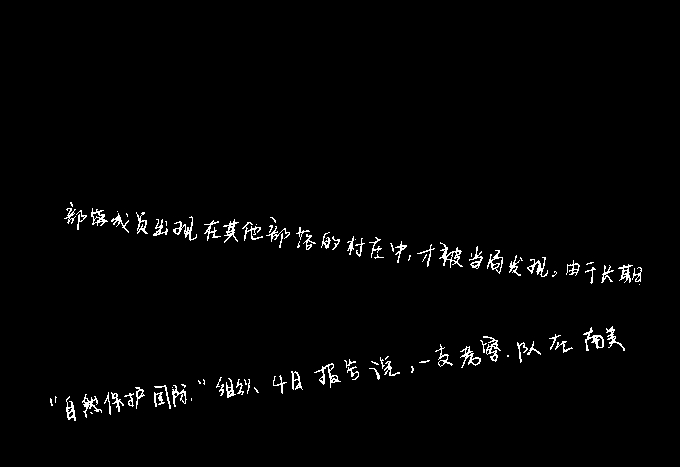 部落成员出现在其他部落的村庄中,才被当局发现。由于长期
“自然保护国际”组织4日报告说,一支考察队在南美